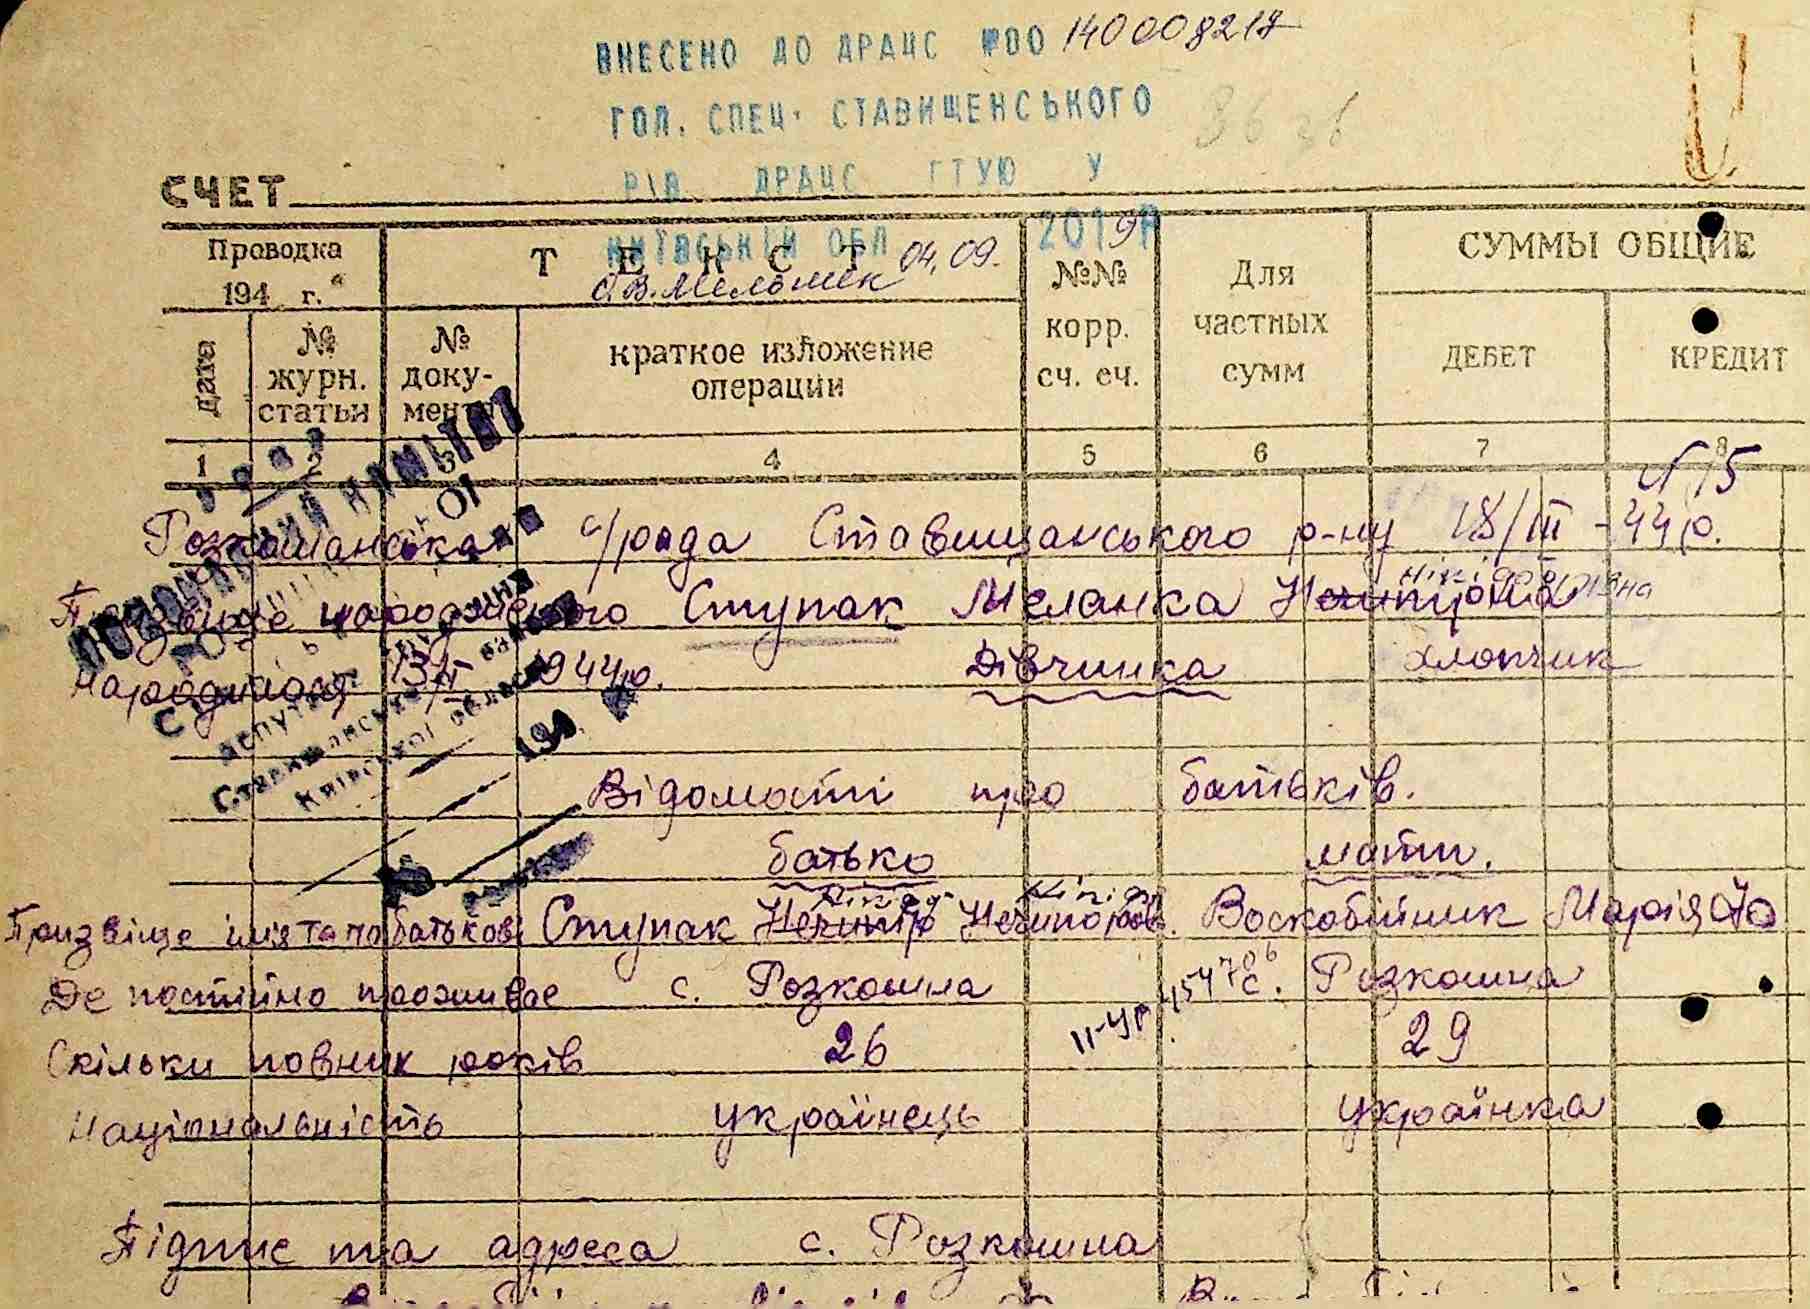 ВНЕСЕНО ДО ДРАЦС №00 140008217
ГОЛ. СПЕЦ. СТАВИЩЕНСЬКОГО
36 зв
РІВ ДРАЦС ГТУЮ У
СЧЕТ
КИЇВСЬКІЙ ОБЛ 04.09. 2019Р
Проводка
194 г.
ТЕКСТ
№№ корр. сч. сч.
Для частных сумм
СУММЫ ОБЩИЕ
Дата
№ журн. статьи
№ доку-мента
краткое изложение операции
ДЕБЕТ
КРЕДИТ
1 2 3 4 5 6 7 8
N 15
Розкошанська с/рада Ставищанського р-ну 18/III-44 р.
Нікіфорівна
Прізвище народженого Ступак Меланка
Народилося 13/II 1944 р. Дівчинка хлопчик
Ставищанського
Київської області
194
Відомості про батьків.
батько мати.
Нікіфор Нікіф
Призвіще імя та по батькові Ступак Нечипір Нечипоров. Воскобійник Марія
Де постійно проживає с. Розкошна с. Розкошна
Скільки повних років 26 29
Національність українець українка
Підпис та адреса с. Розкошна